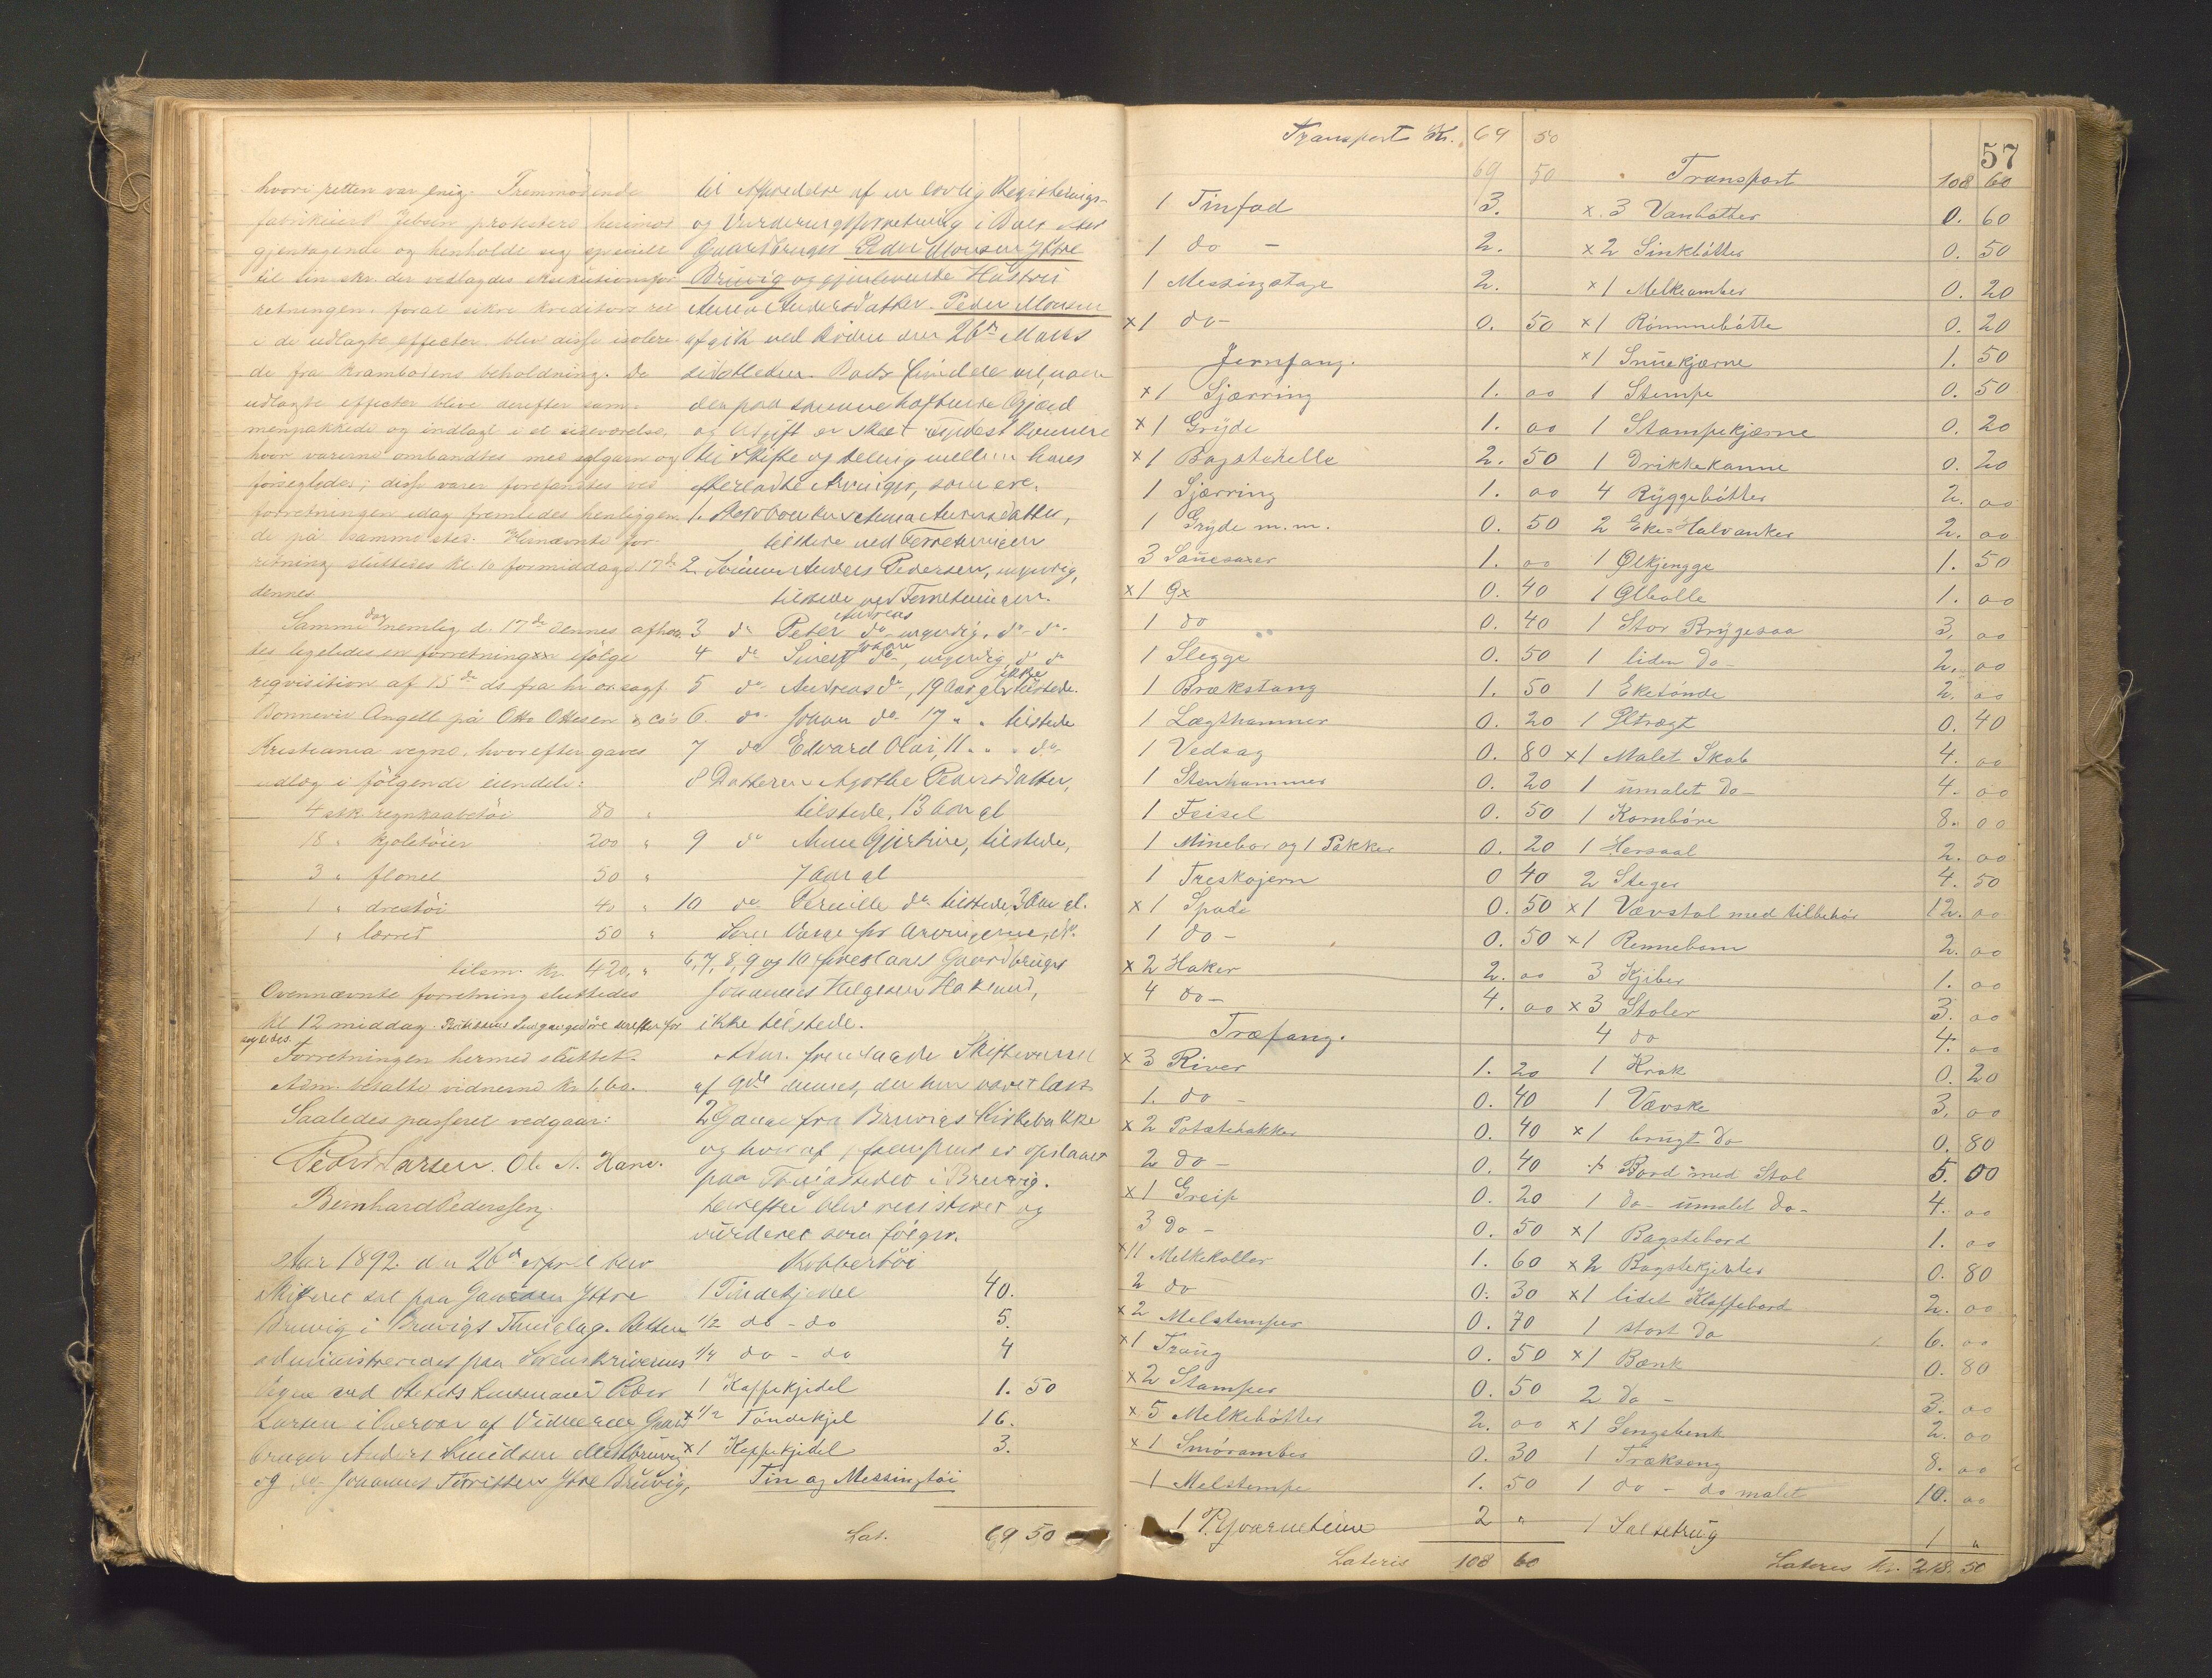 hvori retten var enig. Fremmødende
fabrikeier Jebsen protesterede herimod
gjentagende og henholdt sig specielt
til sin skr. der vedlagdes eksekutionsfor-
retningen. foral sikre kreditors ret
i de udlagte effecter blev disse isolere-
de fra Krambodens beholdning. De
udlagte effecter bleve derefter sam-
menpakkede og indlagt i et sideværelse,
hvor varerne ombandtes med seglgarn og
forsegledes; disse varer forefandtes ved
forretningen idag fremdeles henliggen-
de på samme sted. Hernævnte for-
retning sluttedes kl. 10 formiddags 17de
dennes.
Samme dag nemlig d. 17de dennes afhol-
tes ligeledes en forretning ifølge
reqvisition af 15de ds fra hr. o.r.sagf.
Bonnevie Angell på Otto Ottesen & Co's
Kristiania vegne, hvorefter gaves
udlæg i følgende eiendele:
4 stk. regnkaabetøi 80 "
18 " kjoletøier 200 "
3 " flonel 50 "
1 " drestøi 40 "
1 " lærret 50 "
tilsm. kr. 420, "
Ovennævnte forretning sluttedes
kl 12 middag. Butikkens Indgangsdøre derefter for-
segledes.
Forretningen hermed sluttet.
Adm. betalte vidnerne kr 1.60.
Saaledes passeret vedgaar:
Peder Larsen. Ole N. Hane.
Bernhard Pederssen.
Aar 1892 den 26de April blev
Skifteret sat paa Gaarden Ytre
Bruvig i Bruvigs Thinglag. Retten
administreredes paa Sorenskriverens
Vegne ved Stedets Lensmand Peder
Larsen i Overvær af Vidnerne Gaard-
bruger Anders Knudsen Mestbruvig
og do Johannes Torrissen Ytre Bruvig,
til Afholdelse af en lovlig Registerings-
og Vurderingsforretning i Boet efter
Gaardbruger Peder Monsen Ytre
Bruvig og gjenlevende Hustru
Anna Andersdatter. Peder Monsen
afgik ved Døden den 26de Marts
sidstleden. Boets Eiendele vil, naar
den paa samme heftende Gjæld
og Utgift er skeet fyldest komme
til Skifte og deling mellem hans
efterladte Arvinger, som ere:
1. Stervboenken Anna Andersdatter,
tilstede ved Forretningen
2. Sønnen Anders Pedersen, myndig,
tilstede ved Forretningen.
3 do Peter Andreas do myndig, do do
4 do Sivert Johan do, myndig, do do
5 do Andreas do, 19 Aar gl. ikke tilstede.
6. do Johan do 17 " " tilstede
7 do Edvard Olai, 11 " " do
8 Datteren Agathe Pedersdatter,
tilstede, 13 Aar gl
9 do Anne Gjertine, tilstede,
7 Aar gl
10 do Pernille do tilstede, 3 Aar gl.
Som Værge for Arvingerne, No.
6, 7, 8, 9 og 10 foreslaaes Gaardbruger
Johannes Helgesen Hakland,
ikke tilstede.
Adm. fremlagde Skiftevarsel
af 9de dennes, der har været læst
2 Gange fra Bruvigs Kirkebakke
og hvoraf 1 exemplar er opslaaet
paa Thingstedet i Bruvig.
Derefter blev registeret og
vurderet som følger.
Kobbertøi
1 Tøndekjedel 40.
1/2 do - do 5.
1/4 do - do 4
1 Kaffekjedel 1. 50
x 1/2 Tøndekjel 16.
x 1 Kaffekjedel 3.
Tin og Messingtøi
Lat. 69 50
Transport Kr. 69 50
69 50
1 Tinfad 3.
1 do - 2.
1 Messingstage 2.
x 1 do - 0. 50
Jernfang.
x 1 Sjærring 1. 00
x 1 Gryde 1. 00
x 1 Bagstehelle 2. 50
1 Sjærring 1. 00
1 Gryde m.m. 0. 50
3 Sauesaxer 1. 00
x 1 Øx 0. 40
1 do 0. 40
1 Slegge 0. 50
1 Brækstang 1. 50
1 Lægthammer 0. 20
1 Vedsag 0. 80
1 Stenhammer 0. 20
1 Feisel 0. 50
1 Minebor og 1 Pakker 0. 20
1 Treskojern 0 40
x 1 Spade 0. 50
1 do - 0. 50
x 2 Haker 2. 00
4 do - 4. 00
Træfang.
x 3 River 1. 20
1. do - 0. 40
x 2 Potetehakker 0. 40
2 do - 0. 40
x 1 Greip 0. 20
3 Do - 0. 50
x 11 Melkekoller 1. 60
2 do 0. 30
x 2 Melstemper 0. 70
x 1 Traug 0. 50
x 2 Stamper 0. 50
x 5 Melkebøtter 2. 00
x 1 Smørambar 0. 30
1 Melstempe 1. 50
1 P. Qvarnsteine 2 "
Lateris 108 60
57
Transport 108 60
x. 3 Vanbøtter 0. 60
x 2 Sinkbøtter 0. 50
x 1 Melkeambar 0. 20
x 1 Rømmebøtte 0. 20
x 1 Snuekjærne 1. 50
1 Stempe 0. 50
1 Stampekjærne 0. 20
1 Drikkekanne 0. 20
4 Ryggebøtter 2. 00
2 Eke=Halvanker 2. 00
1 Ølkjengge 1. 50
1 Ølbolle 1. 00
1 Stor Brygesaa 3. 00
1 liden Do - 2. 00
1 Eketønde 2. 00
1 Øltragt 0. 40
x 1 Malet Skab 4. 00
1 umalet Do - 4. 00
1 Kornbøre 8. 00
1 Hersaal 2. 00
2 Steger 4. 50
x 1 Vævstol med tilbehør 12. 00
x 1 Rennebom 2. 00
3 Kjiber 1. 00
x 3 Stoler 3. 00
4 do 4. 00
1 Krak 0. 20
1 Vævske 3. 00
x 1 brugt Do 0. 80
x Bord med Stol 5. 00
1 do - umalet Do - 4. 00
x 1 Bagstebord 1. 00
x 2 Bagstekjevler 0. 80
x 1 lidet Klaffebord 2. 00
1 stort Do 6. 00
x 1 Bænk 0. 80
2 Do - 3. 00
x 1 Sengebenk 2. 00
1 Trækseng 8. 00
1 do - do malet 10. 00
1 Saltetrug 1 "
Lateris Kr. 218. 50